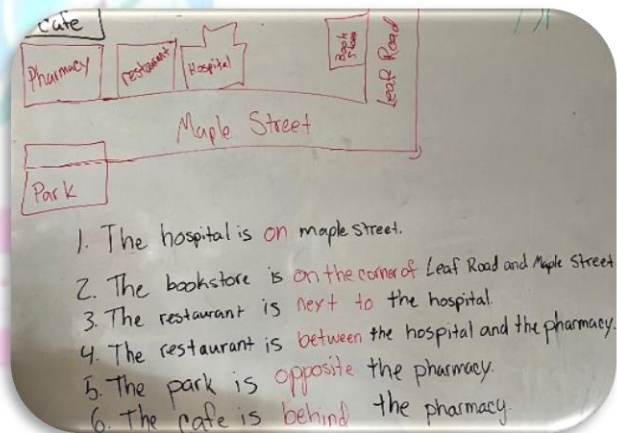 cafe
Pharmacy
restaurant
Hospital
Book
store
Leaf Road
Maple Street
Park
1. The hospital is on maple street.
2. The bookstore is on the corner of Leaf Road and Maple Street
3. The restaurant is next to the hospital.
4. The restaurant is between the hospital and the pharmacy.
5. The park is opposite the pharmacy.
6. The cafe is behind the pharmacy.